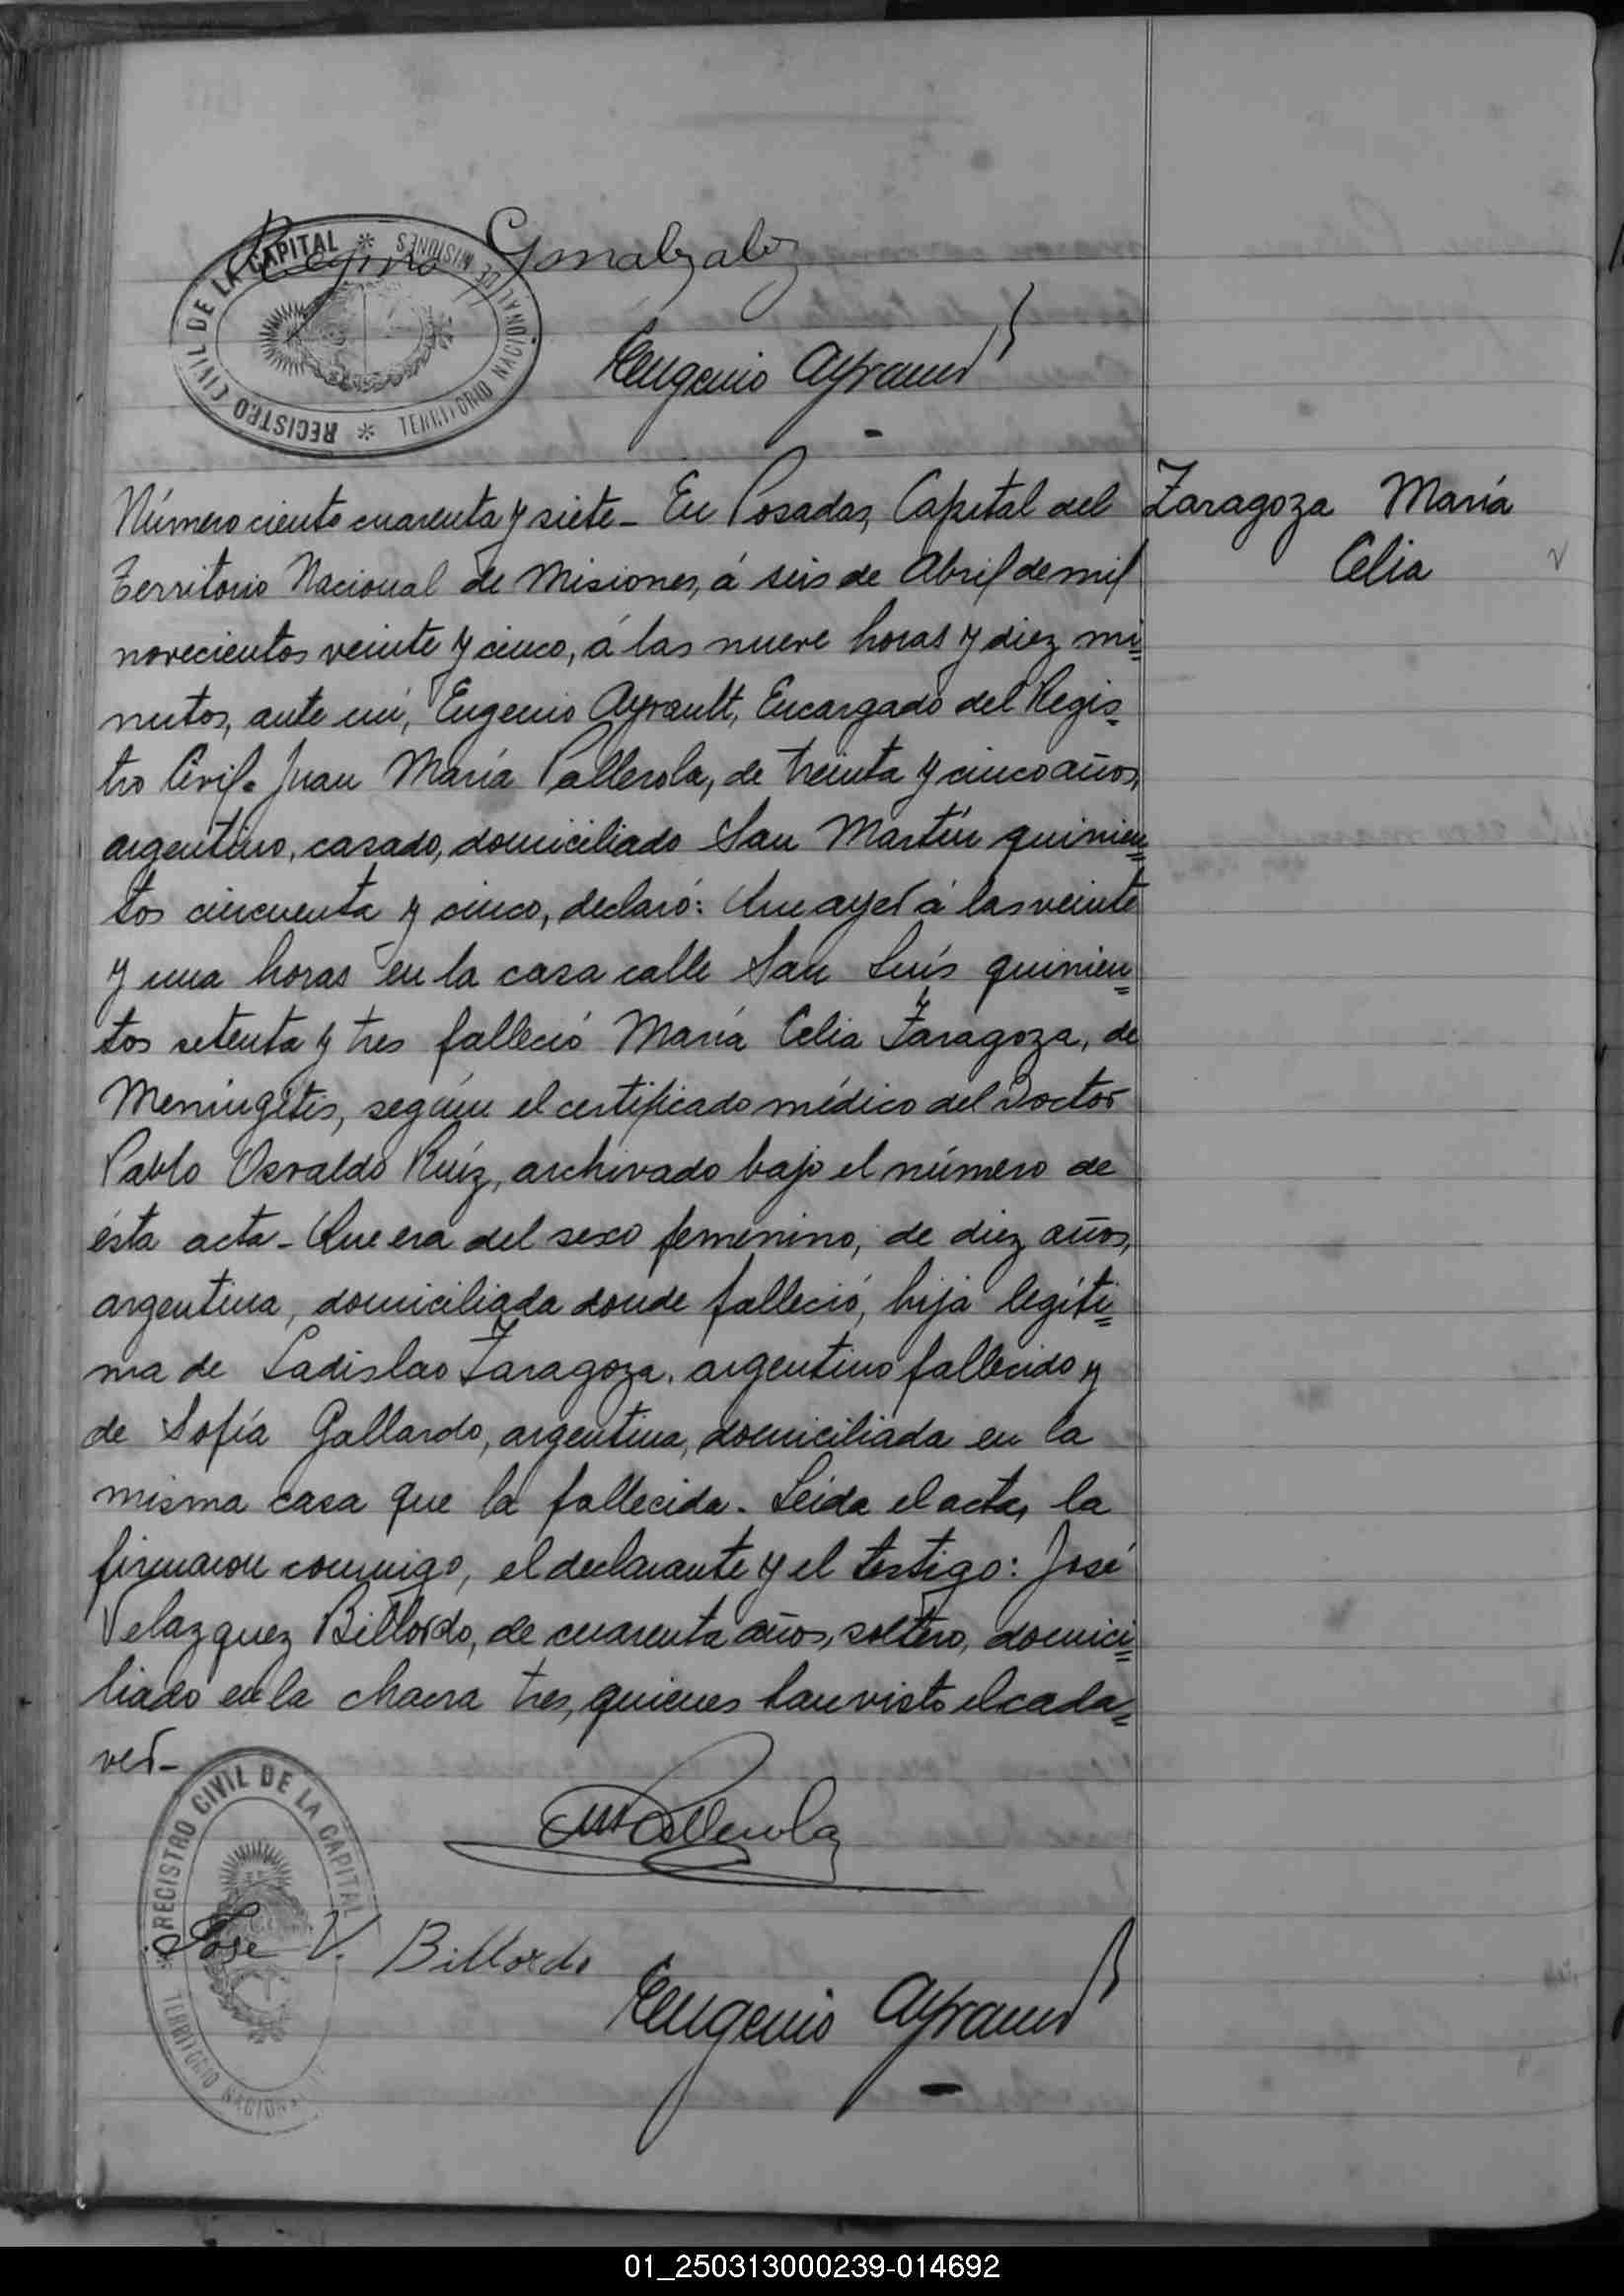 REGISTRO CIVIL DE LA CAPITAL * TERRITORIO NACIONAL DE MISIONES *
Regino Gonalzalez
Eugenio Ayrault
Número ciento cuarenta y siete - En Posadas, Capital del
Zaragoza María
Celia
Territorio Nacional de Misiones, á seis de Abril de mil
novecientos veinte y cinco, á las nueve horas y diez mi=
nutos, ante mi, Eugenio Ayrault, Encargado del Regis=
tro Civil. Juan María Pallerola, de treinta y cinco años,
argentino, casado, domiciliado San Martín quinien=
tos cincuenta y cinco, declaró: Que ayer á las veinte
y una horas en la casa calle San Luís quinien=
tos setenta y tres falleció María Celia Zaragoza, de
Meningitis, según el certificado médico del Doctor
Pablo Osvaldo Ruíz, archivado bajo el número de
ésta acta - Que era del sexo femenino, de diez años,
argentina, domiciliada donde falleció, hija legíti=
ma de Ladislao Zaragoza, argentino fallecido y
de Sofía Gallardo, argentina, domiciliada en la
misma casa que la fallecida. Leída el acta, la
firmaron conmigo, el declarante y el testigo: José
Velazquez Billordo, de cuarenta años, soltero, domici=
liado en la chacra tres, quienes han visto el cada=
ver -
REGISTRO CIVIL DE LA CAPITAL * TERRITORIO NACIONAL
JMPallerola
Jose V. Billordo
Eugenio Ayrault
01_250313000239-014692